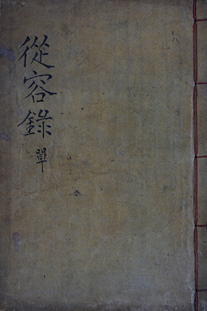 從容錄 單